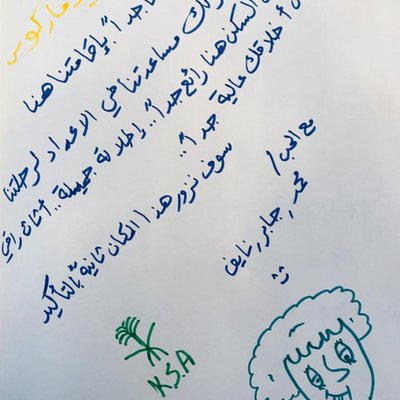 ماركوس
جداً.. بإقامتنا هنا
لك مساعدتنا في الاعداد لرحلتنا
السكن هنا رائع جداً.. وإطلالة جميلة.. أثاث راقي
أخلاقك عالية جداً..
سوف نزور هذا المكان ثانية بالتأكيد
مع الحب /
محمد جابر نايف
K.S.A